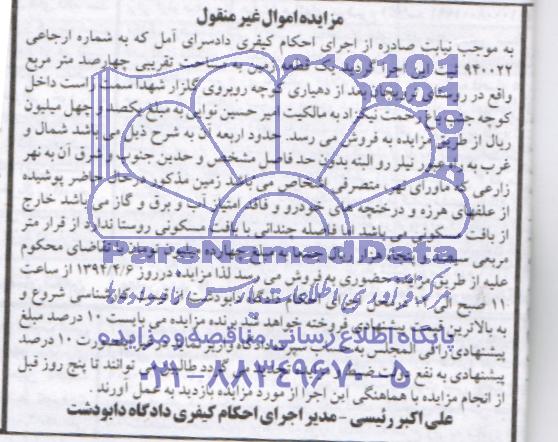 مزایده اموال غیر منقول
به موجب نیابت صادره از اجرای احکام کیفری دادسرای آمل که به شماره ارجاعی
۹۴۰۰۲۲ ثبت این اجرا گردید یک قطعه زمین به مساحت تقریبی چهارصد متر مربع
واقع در روستای بعد از دهیاری کوچه روبروی گلزار شهدا سمت راست داخل
کوچه جنب باغ به مالکیت امیر حسین نوایی به مبلغ یکصد و چهل میلیون
ریال از طریق مزایده به فروش می رسد. حدود اربعه آن به شرح ذیل می باشد شمال و
غرب به نیلر رو البته بدون حد فاصل مشخص و حدین جنوب و شرق آن به نهر
زارعی که ماورای نهر متصرفی اشخاص می باشد زمین مذکور در حال حاضر پوشیده
از علفهای هرزه و درختچه های خودرو و فاقد امتیاز آب و برق و گاز می باشد خارج
از بافت مسکونی می باشد اما فاصله چندانی با بافت مسکونی روستا ندارد از قرار متر
مربعی سیصد و پنجاه هزار ریال جمعا به مبلغ چهارده میلیون تومان با تقاضای محکوم
علیه از طریق مزایده حضوری به فروش می رسد لذا مزایده در روز ۱۳۹۴/۴/۶ از ساعت
۱۱ صبح الی در محل اجرای احکام دادگاه دابودشت از قیمت کارشناسی شروع و
به بالاترین قیمت پیشنهادی فروخته خواهد شد برنده مزایده می بایست ۱۰ درصد مبلغ
پیشنهادی را فی المجلس به حساب سپرده دادگاه واریز نماید در غیر اینصورت ۱۰ درصد
پیشنهادی به نفع دولت ضبط و مزایده تجدید می گردد طالبین می توانند تا پنج روز قبل
از انجام مزایده با هماهنگی این اجرا از مورد مزایده بازدید به عمل آورند
علی اکبر رئیسی - مدیر اجرای احکام کیفری دادگاه دابودشت
ParsNamadData
پایگاه اطلاع رسانی مناقصه و مزایده
۰۲۱-۸۸۳۴۹۶۷۰-۵